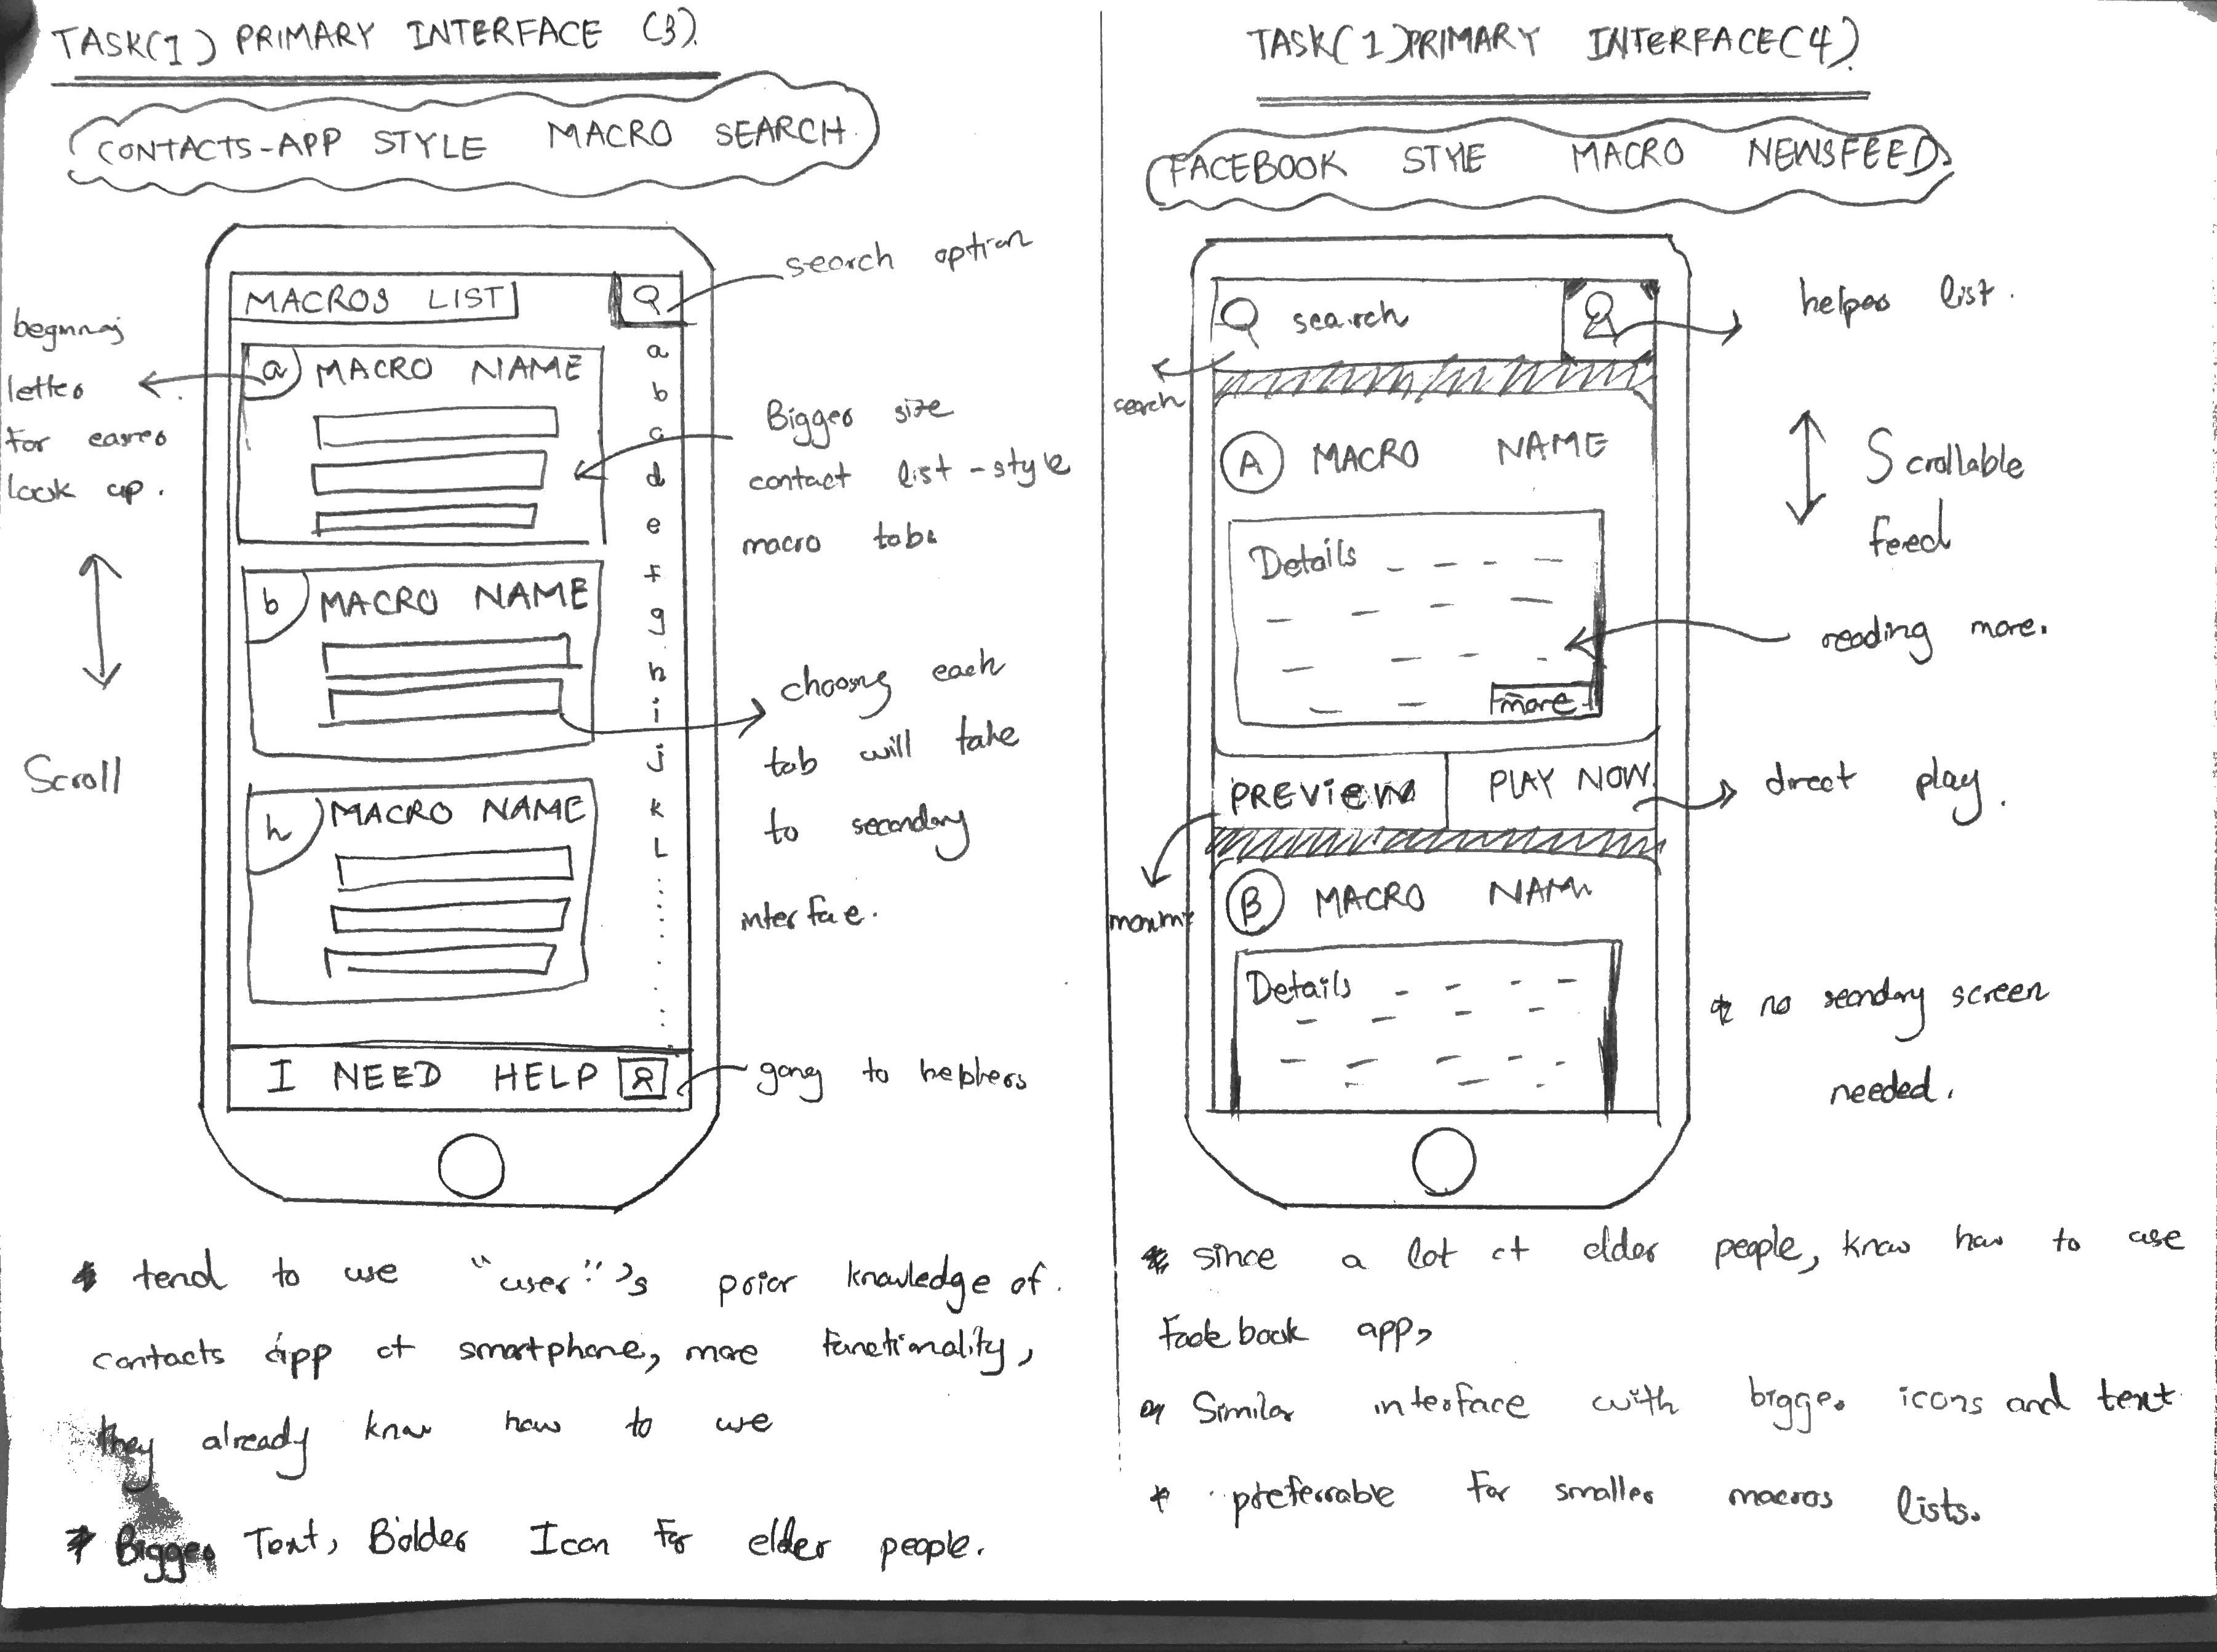 TASK(1) PRIMARY INTERFACE (3).
CONTACTS-APP STYLE MACRO SEARCH.
MACROS LIST
search option
beginning
letter
for easier
look up.
a MACRO NAME
Bigger size
contact list-style
macro tabs
Scroll
b MACRO NAME
choosing each
tab will take
to secondary
interface.
h MACRO NAME
a
b
c
d
e
f
g
h
i
j
k
L
I NEED HELP
going to helpers
* tend to use "user"'s prior knowledge of.
contacts app of smartphone, more functionality,
they already know how to use
* Bigger Text, Bolder Icon for elder people.
TASK(1) PRIMARY INTERFACE (4).
FACEBOOK STYLE MACRO NEWSFEED
search
helper list.
search
A MACRO NAME
Scrollable
feed
Details
reading more.
more
PREVIEW
PLAY NOW
direct play.
B MACRO NAME
Details
* no secondary screen
needed.
* since a lot of elder people, know how to use
Facebook app,
* Similar interface with bigger icons and text
* preferrable for smaller macros lists.